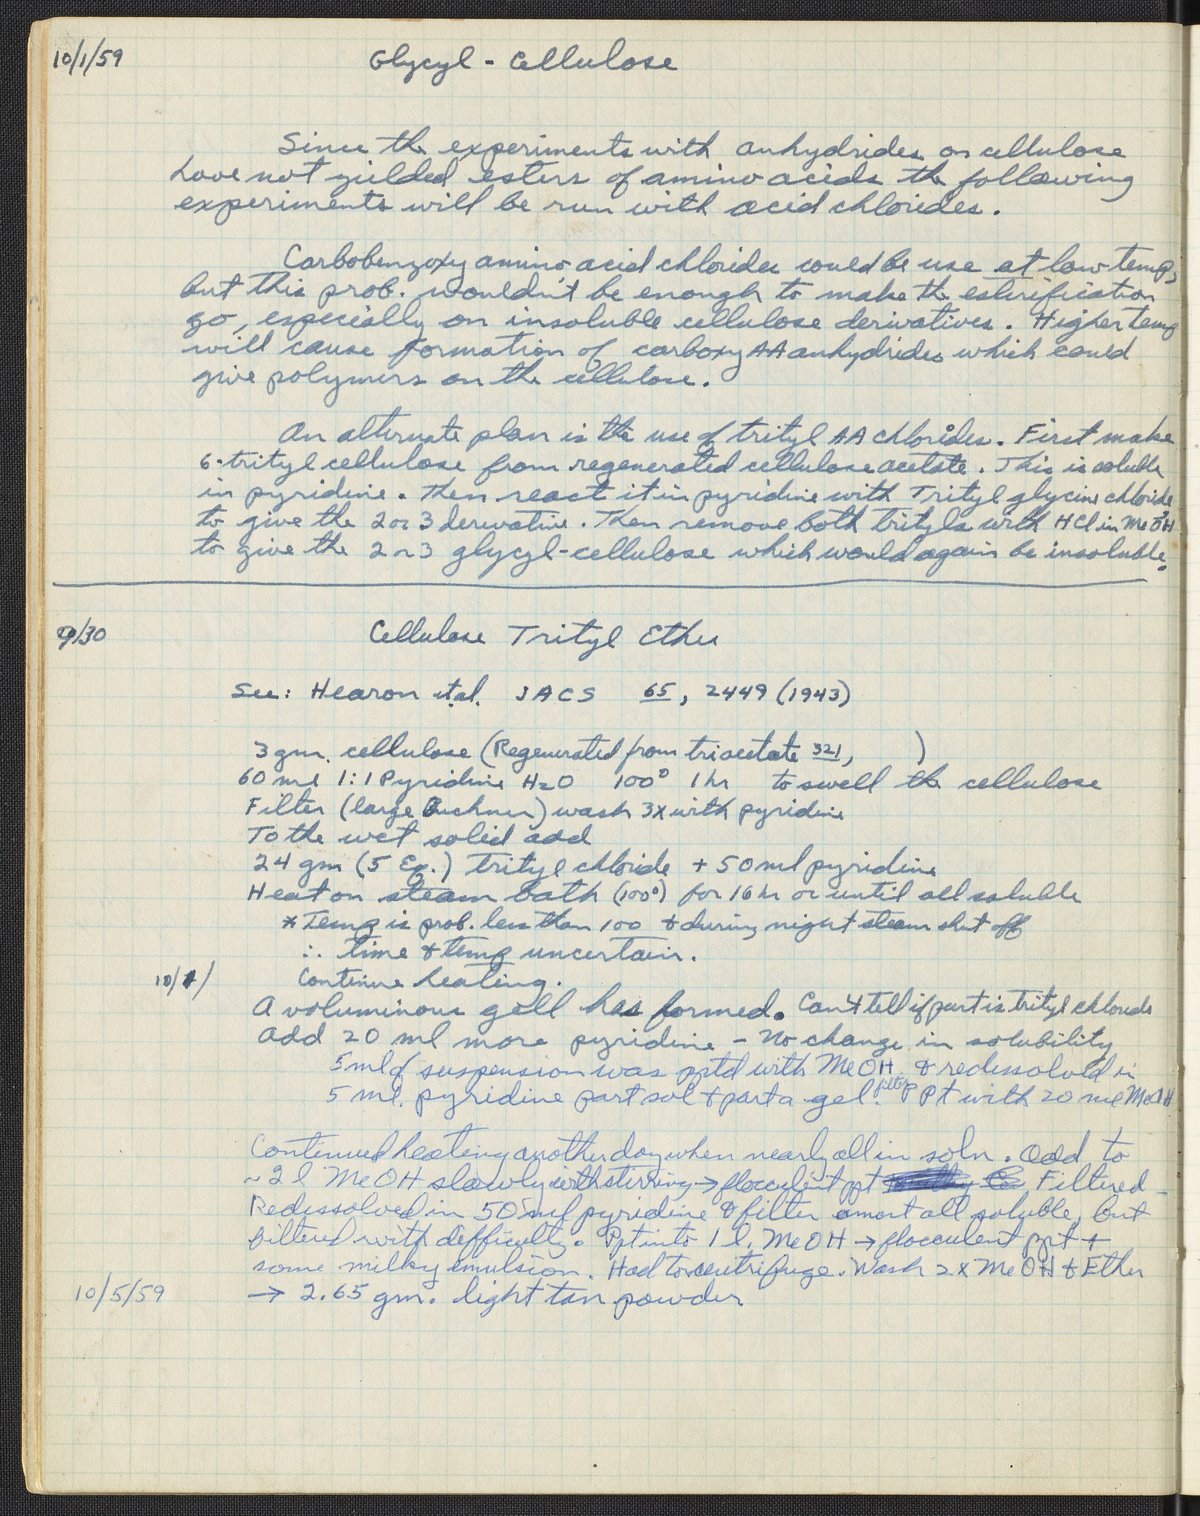 10/1/59 Glycyl - Cellulose
Since the experiments with anhydrides on cellulose
have not yielded esters of amino acids the following
experiments will be run with acid chlorides.
Carbobenzoxy amino acid chlorides could be use at low temp,
but this prob. wouldn't be enough to make the esterification
go, especially on insoluble cellulose derivatives. Higher temp
will cause formation of carboxy AA anhydrides which could
give polymers on the cellulose.
An alternate plan is the use of trityl AA chlorides. First make
6-trityl cellulose from regenerated cellulose acetate. This is soluble
in pyridine. Then react it in pyridine with Trityl glycine chloride
to give the 2 or 3 derivative. Then remove both trityls with HCl in MeOH
to give the 2 or 3 glycyl-cellulose which would again be insoluble.
9/30 Cellulose Trityl Ether
See: Hearon et.al. JACS 65, 2449 (1943)
3 gm. cellulose (Regenerated from triacetate 321, )
60 ml 1:1 Pyridine H2O 100° 1 hr to swell the cellulose
Filter (large Buchner) wash 3x with pyridine
To the wet solid add
24 gm (5 Eq.) trityl chloride + 50 ml pyridine
Heat on steam bath (100°) for 16 hr or until all soluble
* Temp is prob. less than 100 & during night steam shut off
∴ time & temp uncertain.
10/1/ Continue heating.
A voluminous gell has formed. Can't tell if part is trityl chloride
Add 20 ml more pyridine - No change in solubility
5 ml of suspension was pptd with MeOH & redissolved in
5 ml. pyridine part sol & part a gel. filter Ppt with 20 ml MeOH
Continued heating another day when nearly all in soln. Add to
~2 l MeOH slowly with stirring → flocculent ppt Filtered -
Redissolved in 50 ml pyridine & filter amost all soluble, but
filtered with difficulty. Ppt into 1 l. MeOH → flocculent ppt +
some milky emulsion. Had to centrifuge. Wash 2x MeOH & Ether
10/5/59 → 2.65 gm. light tan powder